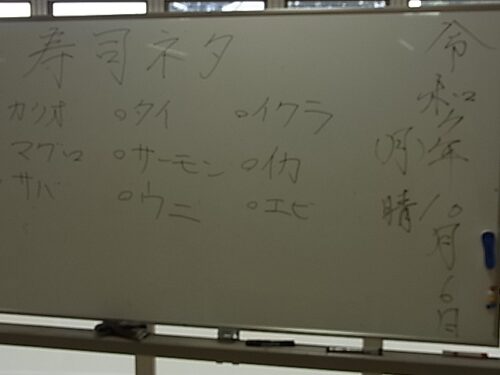 寿司ネタ
カツオ ○タイ ○イクラ
マグロ ○サーモン ○イカ
サバ ○ウニ ○エビ
令和7年10月6日
(月)晴